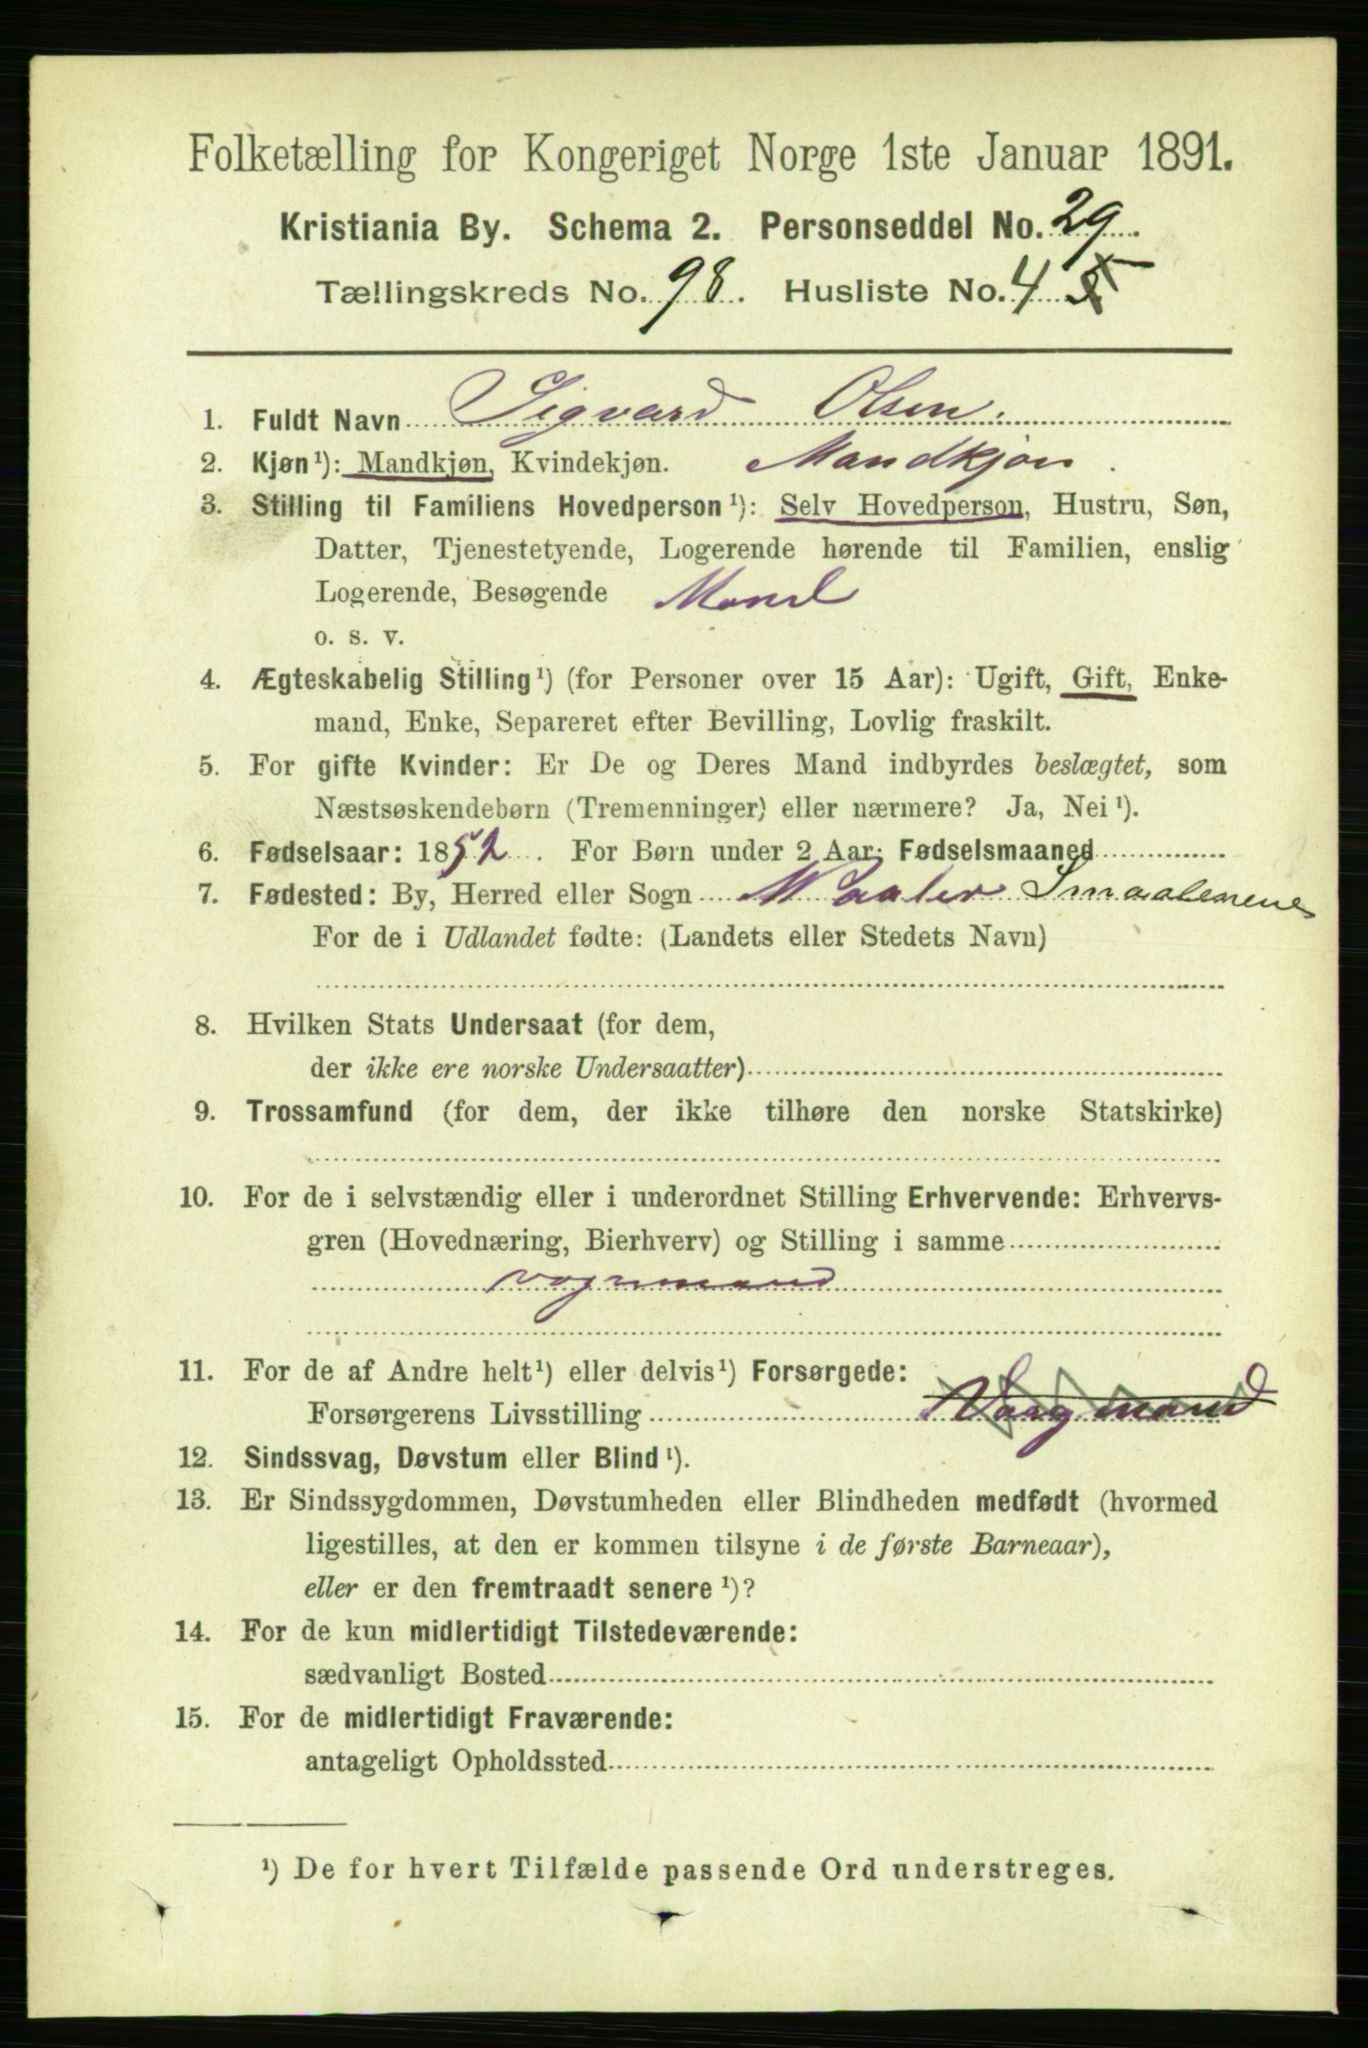 Folketælling for Kongeriget Norge 1ste Januar 1891.
Kristiania By. Schema 2. Personseddel No. 29.
Tællingskreds No. 98. Husliste No. 4
1. Fuldt Navn Sigvard Olsen.
2. Kjøn ¹): Mandkjøn, Kvindekjøn. Mandkjøn.
3. Stilling til Familiens Hovedperson ¹): Selv Hovedperson, Hustru, Søn,
Datter, Tjenestetyende, Logerende hørende til Familien, enslig
Logerende, Besøgende Mand
o. s. v.
4. Ægteskabelig Stilling ¹) (for Personer over 15 Aar): Ugift, Gift, Enke-
mand, Enke, Separeret efter Bevilling, Lovlig fraskilt.
5. For gifte Kvinder: Er De og Deres Mand indbyrdes beslægtet, som
Næstsøskendebørn (Tremenninger) eller nærmere? Ja, Nei ¹).
6. Fødselsaar: 1852. For Børn under 2 Aar: Fødselsmaaned
7. Fødested: By, Herred eller Sogn Maaler Smaalenene
For de i Udlandet fødte: (Landets eller Stedets Navn)
8. Hvilken Stats Undersaat (for dem,
der ikke ere norske Undersaatter)
9. Trossamfund (for dem, der ikke tilhøre den norske Statskirke)
10. For de i selvstændig eller i underordnet Stilling Erhvervende: Erhvervs-
gren (Hovednæring, Bierhverv) og Stilling i samme
vognmand
11. For de af Andre helt ¹) eller delvis ¹) Forsørgede:
Forsørgerens Livsstilling
12. Sindssvag, Døvstum eller Blind ¹).
13. Er Sindssygdommen, Døvstumheden eller Blindheden medfødt (hvormed
ligestilles, at den er kommen tilsyne i de første Barneaar),
eller er den fremtraadt senere ¹)?
14. For de kun midlertidigt Tilstedeværende:
sædvanligt Bosted
15. For de midlertidigt Fraværende:
antageligt Opholdssted
¹) De for hvert Tilfælde passende Ord understreges.